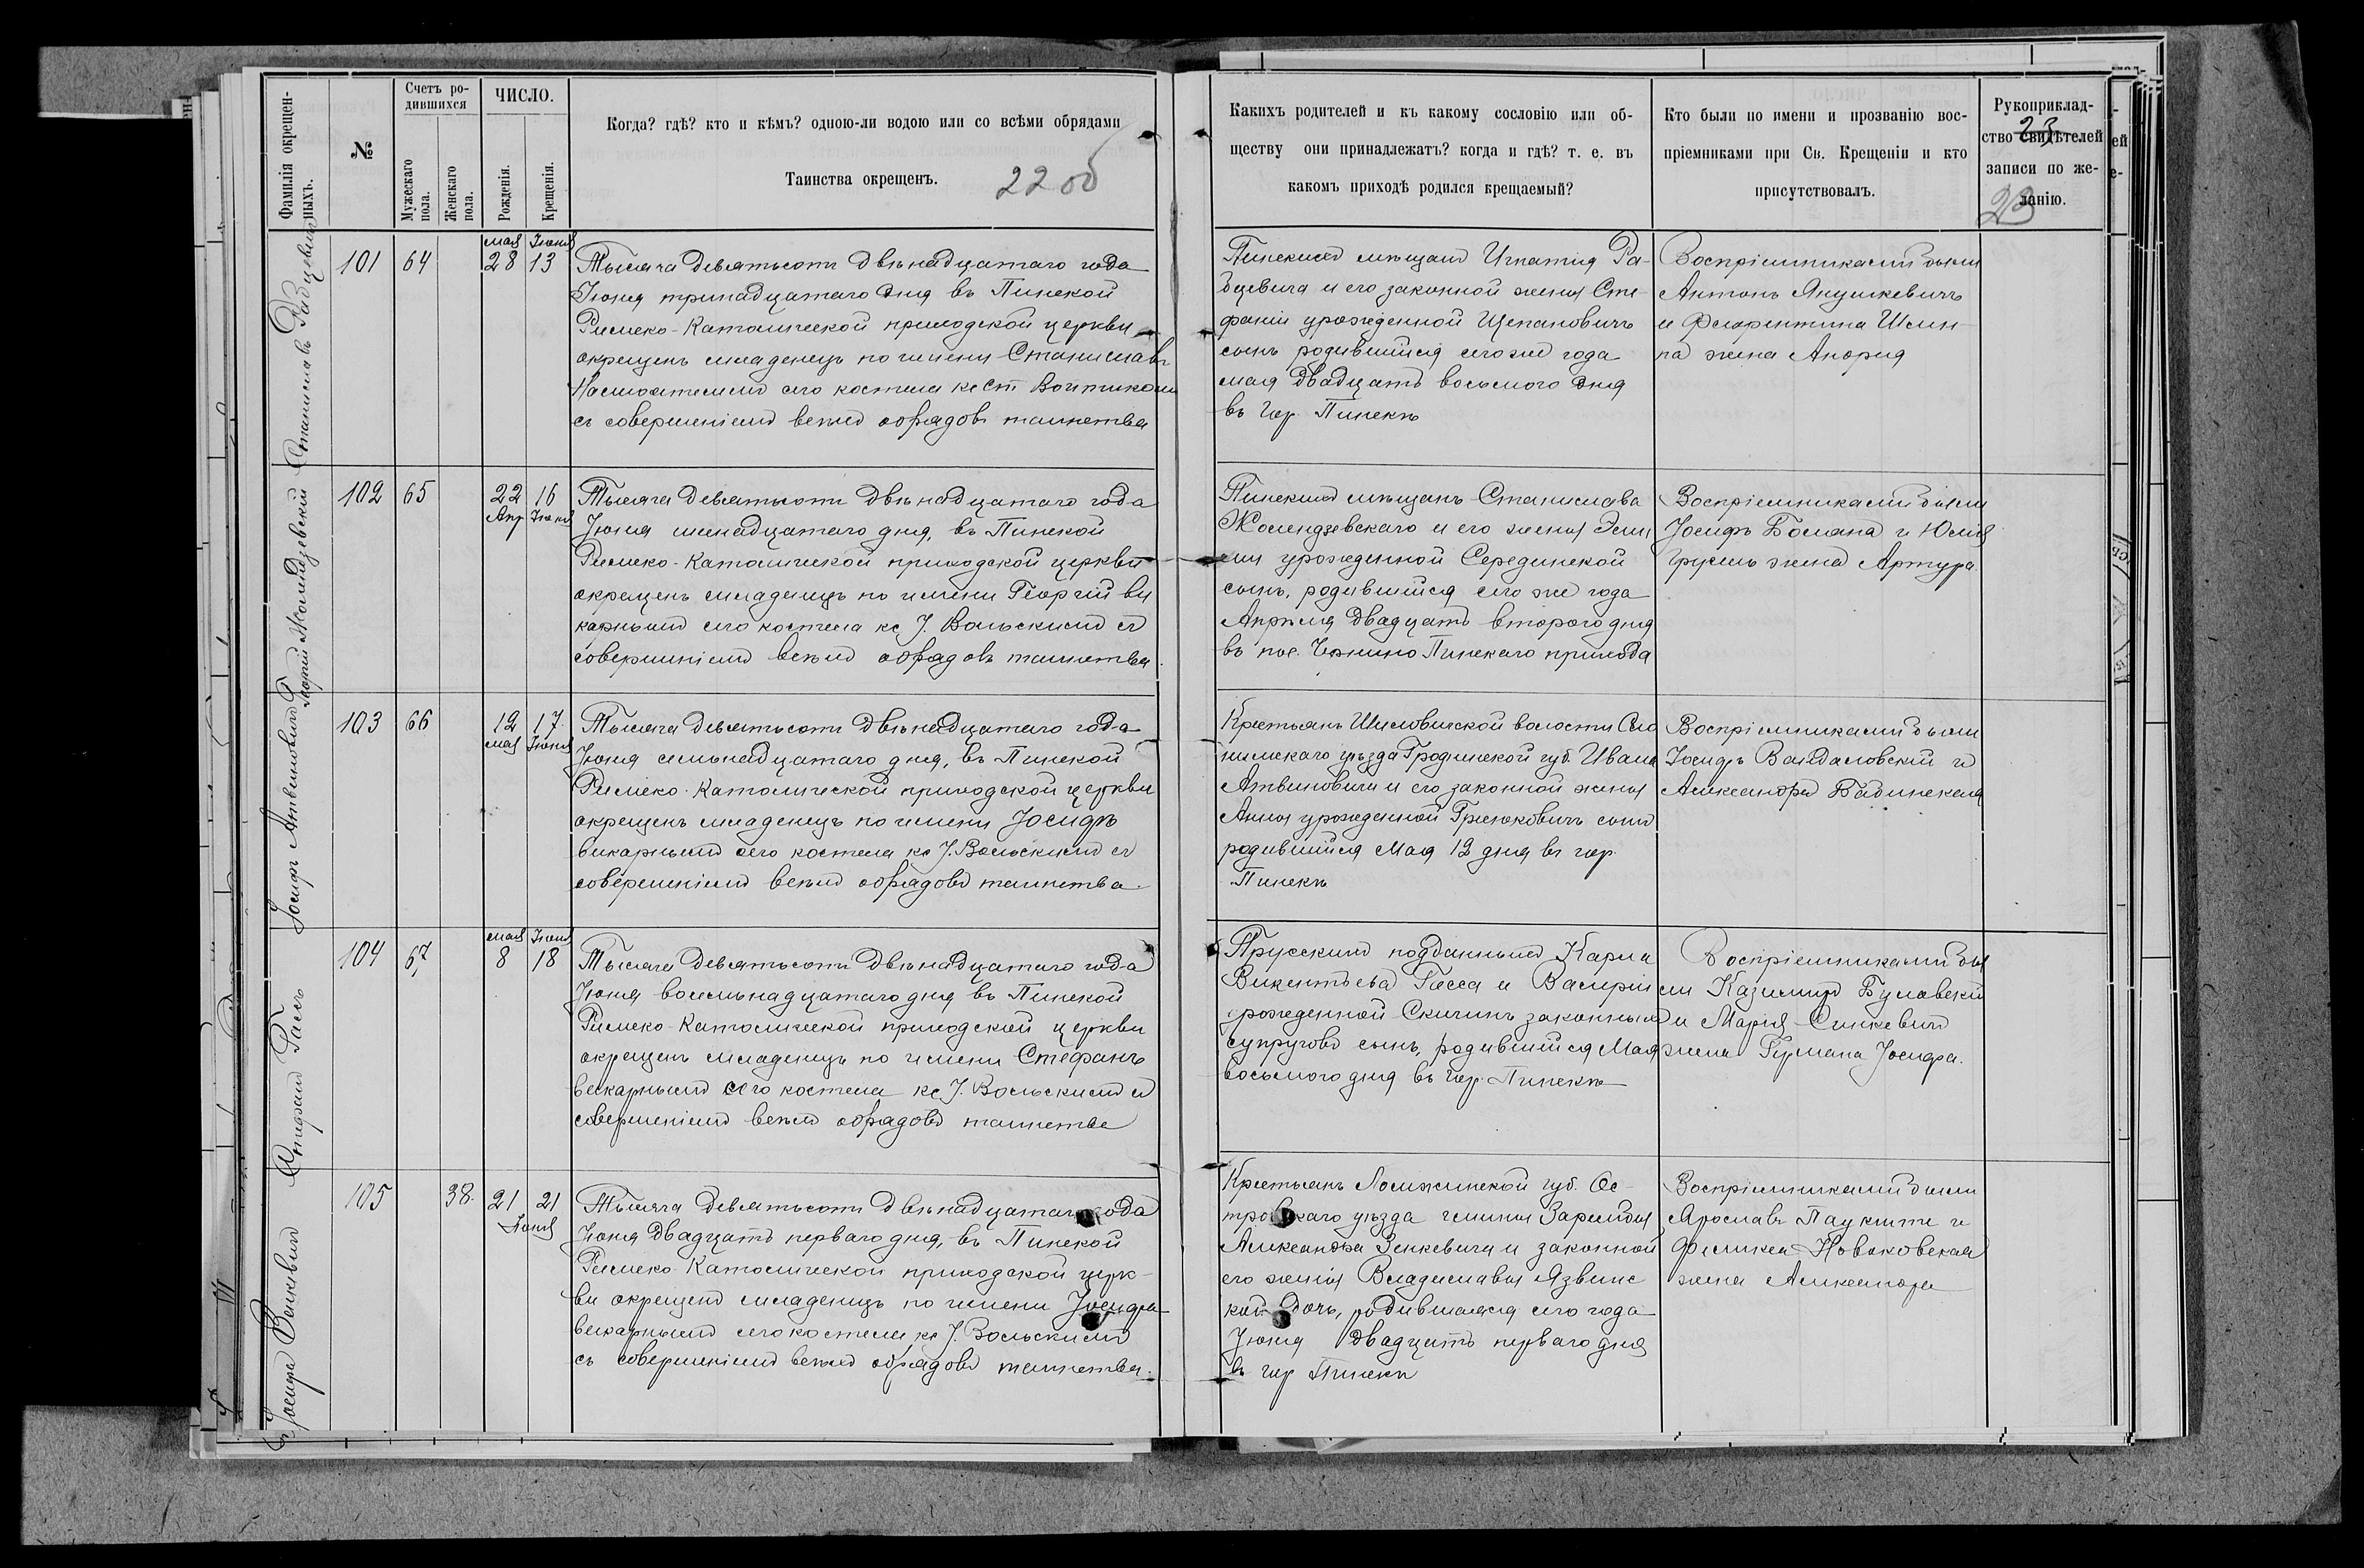 Фамилія окрещен-
ныхъ.
№
Счетъ ро-
дившихся
Мужескаго
пола.
Женскаго
пола.
ЧИСЛО.
Рожденія.
Крещенія.
Когда? гдѣ? кто и кѣмъ? одною-ли водою или со всѣми обрядами
Таинства окрещенъ.
22 об
Какихъ родителей и къ какому сословію или об-
ществу они принадлежатъ? когда и гдѣ? т. е. въ
какомъ приходѣ родился крещаемый?
Кто были по имени и прозванію вос-
пріемниками при Св. Крещеніи и кто
присутствовалъ.
Рукоприклад-
ство свидѣтелей
записи по же-
ланію.
23
23
Станиславъ Радцевичъ
101 64
мая Іюня
28 13
Тысяча девятьсотъ двѣнадцатаго года
Іюня тринадцатаго дня въ Пинской
Римско-Католической приходской церкви
окрещенъ младенецъ по имени Станиславъ
Настоятелемъ сего костела кс Ст Войтикомъ
съ совершеніемъ всѣхъ обрядовъ таинства
Пинскихъ мѣщанъ Игнатія Ра-
дцевича и его законной жены Сте-
фаніи урожденной Щепановичъ
сынъ родившійся сего же года
мая двадцать восьмого дня
въ гор. Пинскѣ
Воспріемниками были
Антонъ Янушкевичъ
и Флорентина Шлин-
па жена Андрея
Георгій Жолендзевскій
102 65
22 16
Апр Іюня
Тысяча девятьсотъ двѣнадцатаго года
Іюня шеснадцатаго дня, въ Пинской
Римско-Католической приходской церкви
окрещенъ младенецъ по имени Георгій ви
карнымъ сего костела кс І. Вольскимъ съ
совершеніемъ всѣхъ обрядовъ таинства.
Пинскихъ мѣщанъ Станислава
Жолендзевскаго и его жены Эми
ліи урожденной Серединской
сынъ, родившійся сего же года
Апрѣля двадцать второго дня
въ пос. Пинскаго прихода
Воспріемниками были
Іосифъ Боляна и Юлія
жена Артура.
Іосифъ Литвиновичъ
103 66
12 17
мая Іюня
Тысяча девятьсотъ двѣнадцатаго года
Іюня семьнадцатаго дня, въ Пинской
Римско-Католической приходской церкви
окрещенъ младенецъ по имени Іосифъ
викарнымъ сего костела кс І. Вольскимъ съ
совершеніемъ всѣхъ обрядовъ таинства.
Крестьянъ Шиловичской волости Сло
нимскаго уѣзда Гродненской губ. Ивана
Литвиновича и его законной жены
Анны урожденной Гринковичъ сынъ
родившійся Мая 12 дня въ гор.
Пинскѣ
Воспріемниками были
Іосифъ Вандаловскій и
Александра Бабинская
Стефанъ Гассъ
104 67,
мая Іюня
8 18
Тысяча девятьсотъ двѣнадцатаго года
Іюня восемьнадцатаго дня въ Пинской
Римско-Католической приходской церкви
окрещенъ младенецъ по имени Стефанъ
викарнымъ сего костела кс І. Вольскимъ съ
совершеніемъ всѣхъ обрядовъ таинства
Прусскихъ подданныхъ Карла
Викентьева Гасса и Валеріи
урожденной Скичинъ законныхъ
супруговъ сынъ, родившійся Мая
восьмого дня въ гор. Пинскѣ
Воспріемниками бы
ли Казимиръ Булавскій
и Марія Синкевичъ
жена Германа Іосифа.
Іосифа Зенкевичъ
105 38.
21 21
Іюня
Тысяча девятьсотъ двѣнадцатаго года
Іюня двадцать перваго дня, въ Пинской
Римско-Католической приходской церк-
ви окрещенъ младенецъ по имени Іосифа
викарнымъ сего костела кс І. Вольскимъ
съ совершеніемъ всѣхъ обрядовъ таинства.
Крестьянъ Ломжинской губ. Ос-
тровскаго уѣзда гмины Зарембы
Александра Зенкевича и законной
его жены Владиславы Язвинс
кой дочь, родившаяся сего года
Іюня двадцать перваго дня
въ гор Пинскѣ
Воспріемниками были
Ярославъ Паукште и
Феликса Новаковская
жена Александра